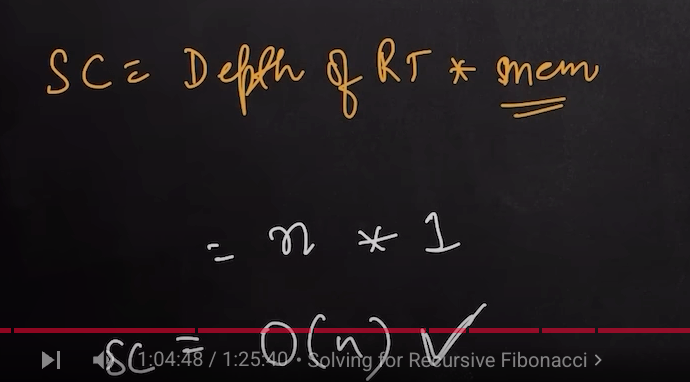 SC = Depth of RT * mem
= n * 1
SC = O(n) ✓
1:04:48 / 1:25:40 • Solving for Recursive Fibonacci >